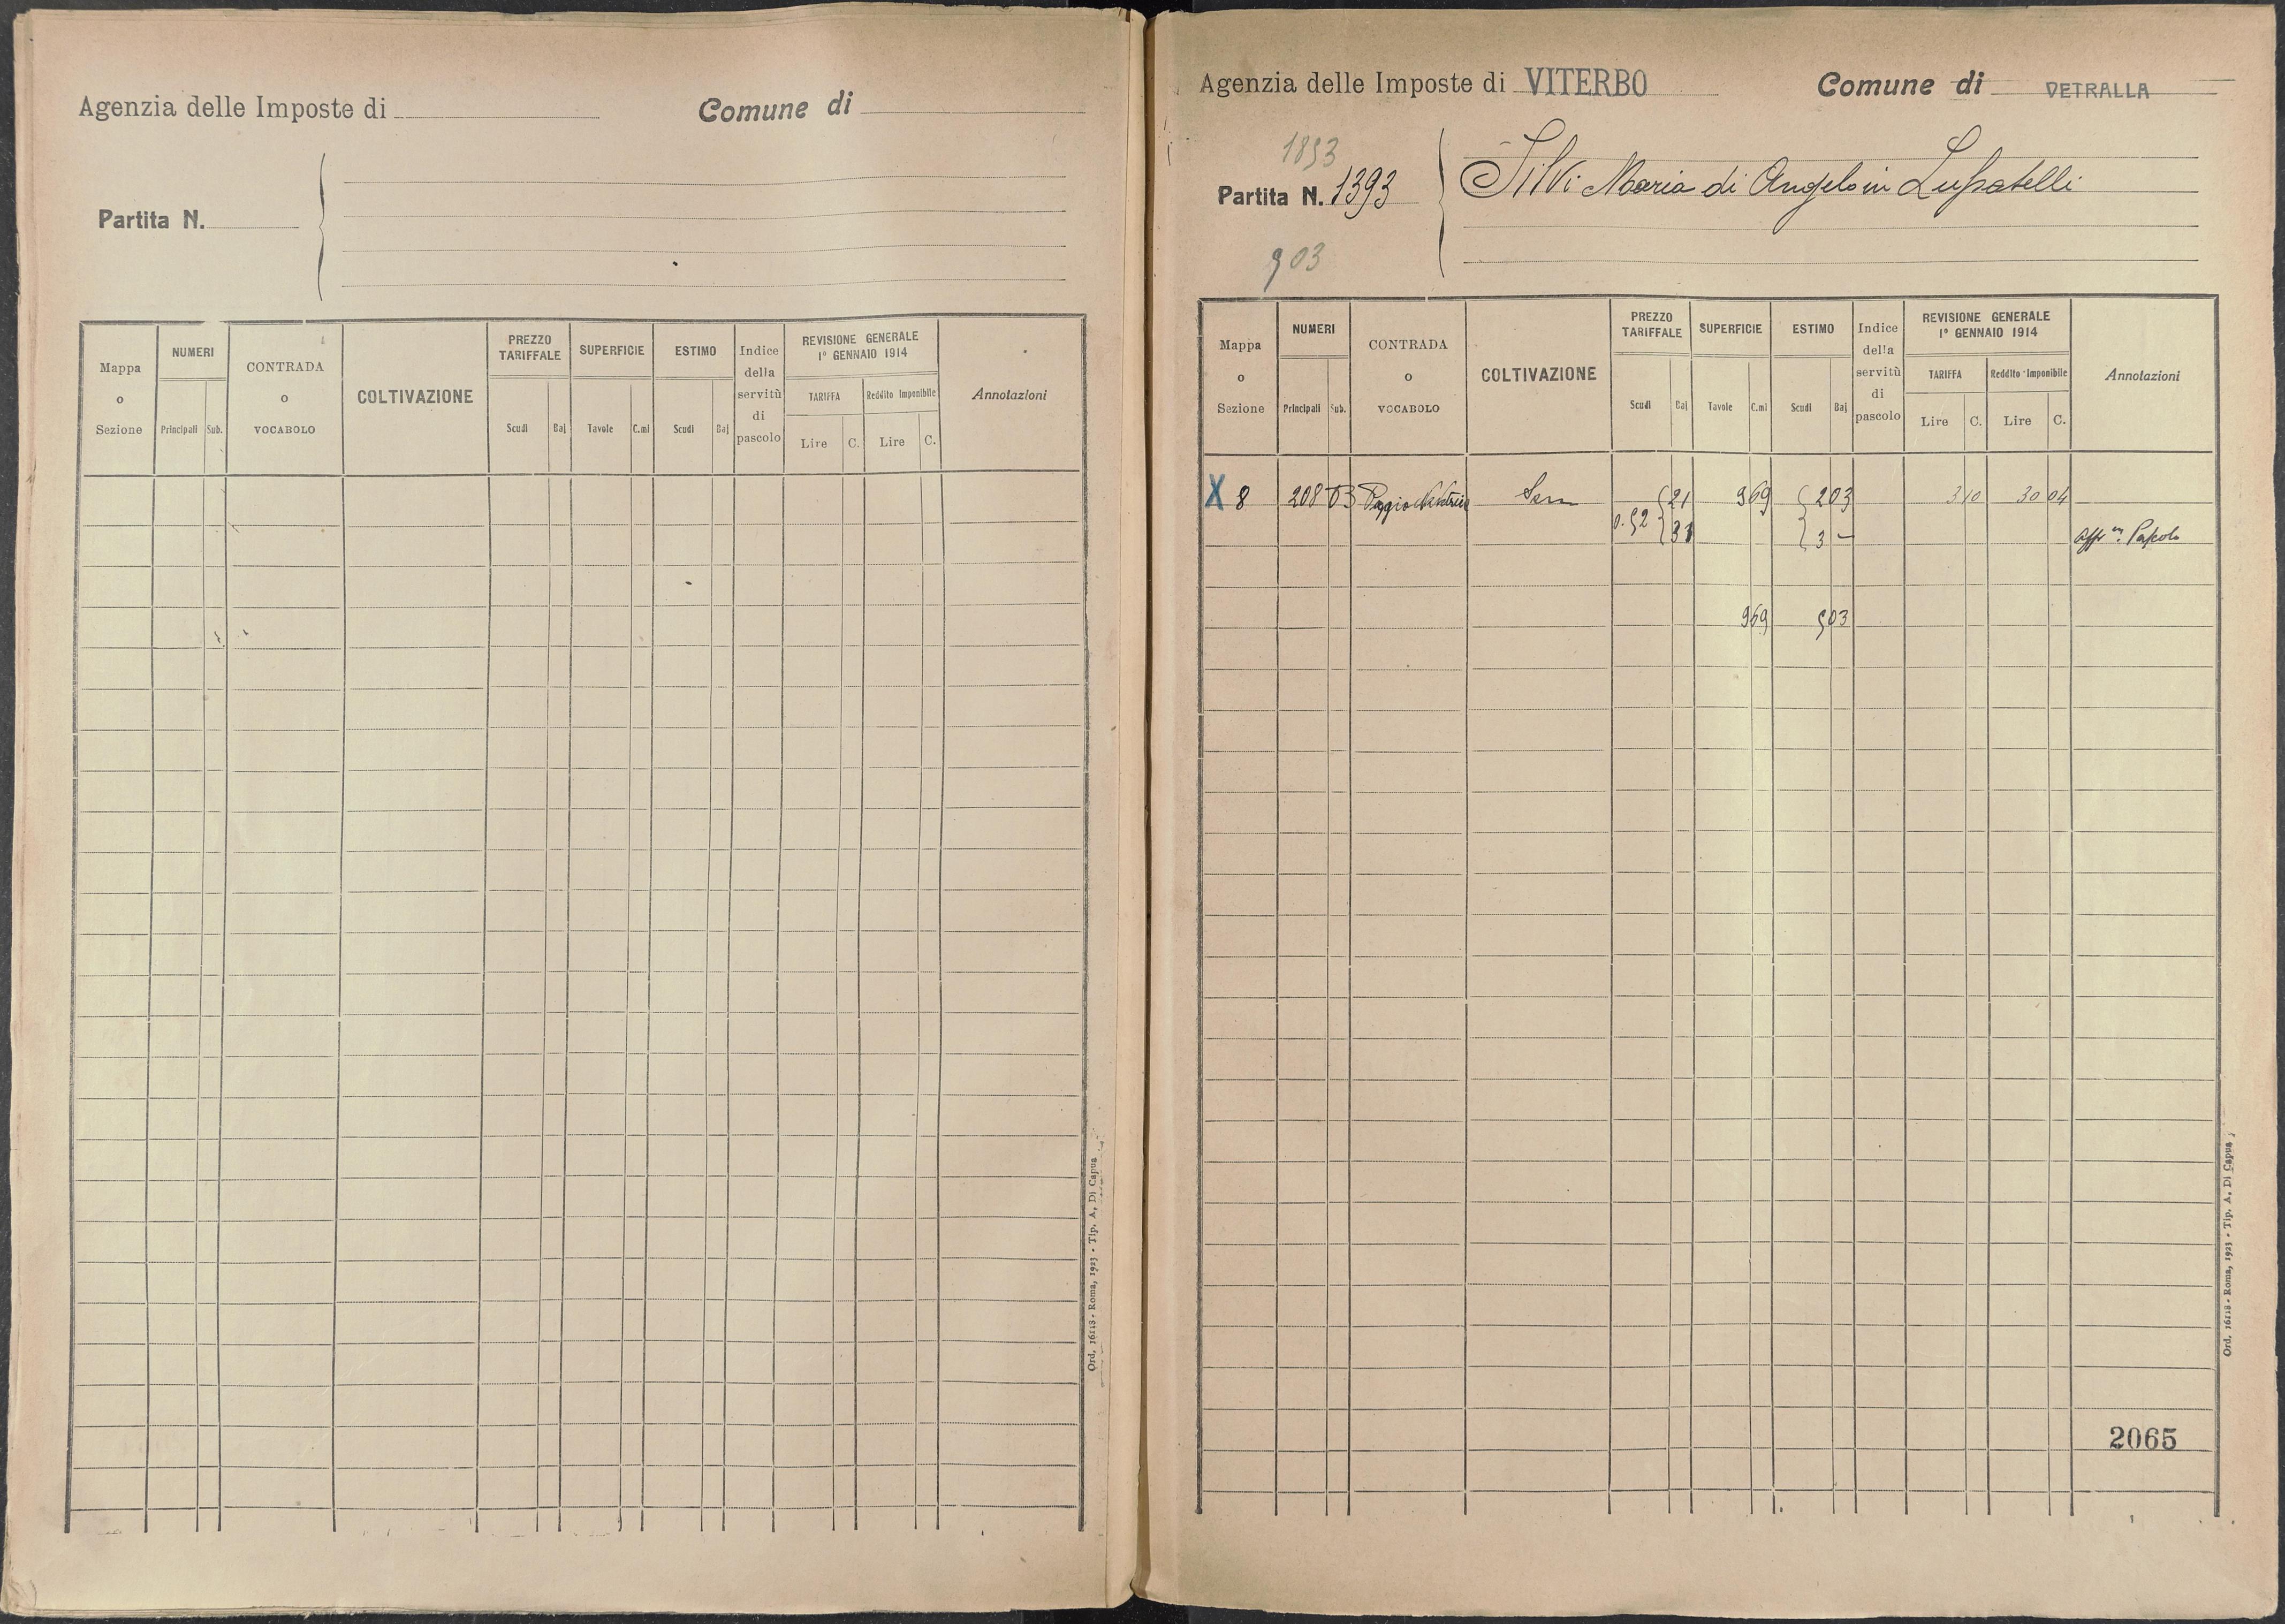 Agenzia delle Imposte di
Comune di
Partita N.
Mappa o Sezione
NUMERI
Principali Sub.
CONTRADA o VOCABOLO
COLTIVAZIONE
PREZZO TARIFFALE
Scudi Baj
SUPERFICIE
Tavole C.mi
ESTIMO
Scudi Baj
Indice della servitù di pascolo
REVISIONE GENERALE
1° GENNAIO 1914
TARIFFA
Lire C.
Reddito Imponibile
Lire C.
Annotazioni
Ord. 16118 - Roma, 1923 - Tip. A. Di Capua
Agenzia delle Imposte di VITERBO
Comune di VETRALLA
1893
Partita N. 1393
Silvi Maria di Angelo in Lupatelli
503
Mappa o Sezione
NUMERI
Principali Sub.
CONTRADA o VOCABOLO
COLTIVAZIONE
PREZZO TARIFFALE
Scudi Baj
SUPERFICIE
Tavole C.mi
ESTIMO
Scudi Baj
Indice della servitù di pascolo
REVISIONE GENERALE
1° GENNAIO 1914
TARIFFA
Lire C.
Reddito Imponibile
Lire C.
Annotazioni
X 8 208 Poggio Sem 21 969 203 3 10 30 04
0.52 31 3 — Affr.ne Pascolo
969 503
2065
Ord. 16118 - Roma, 1923 - Tip. A. Di Capua